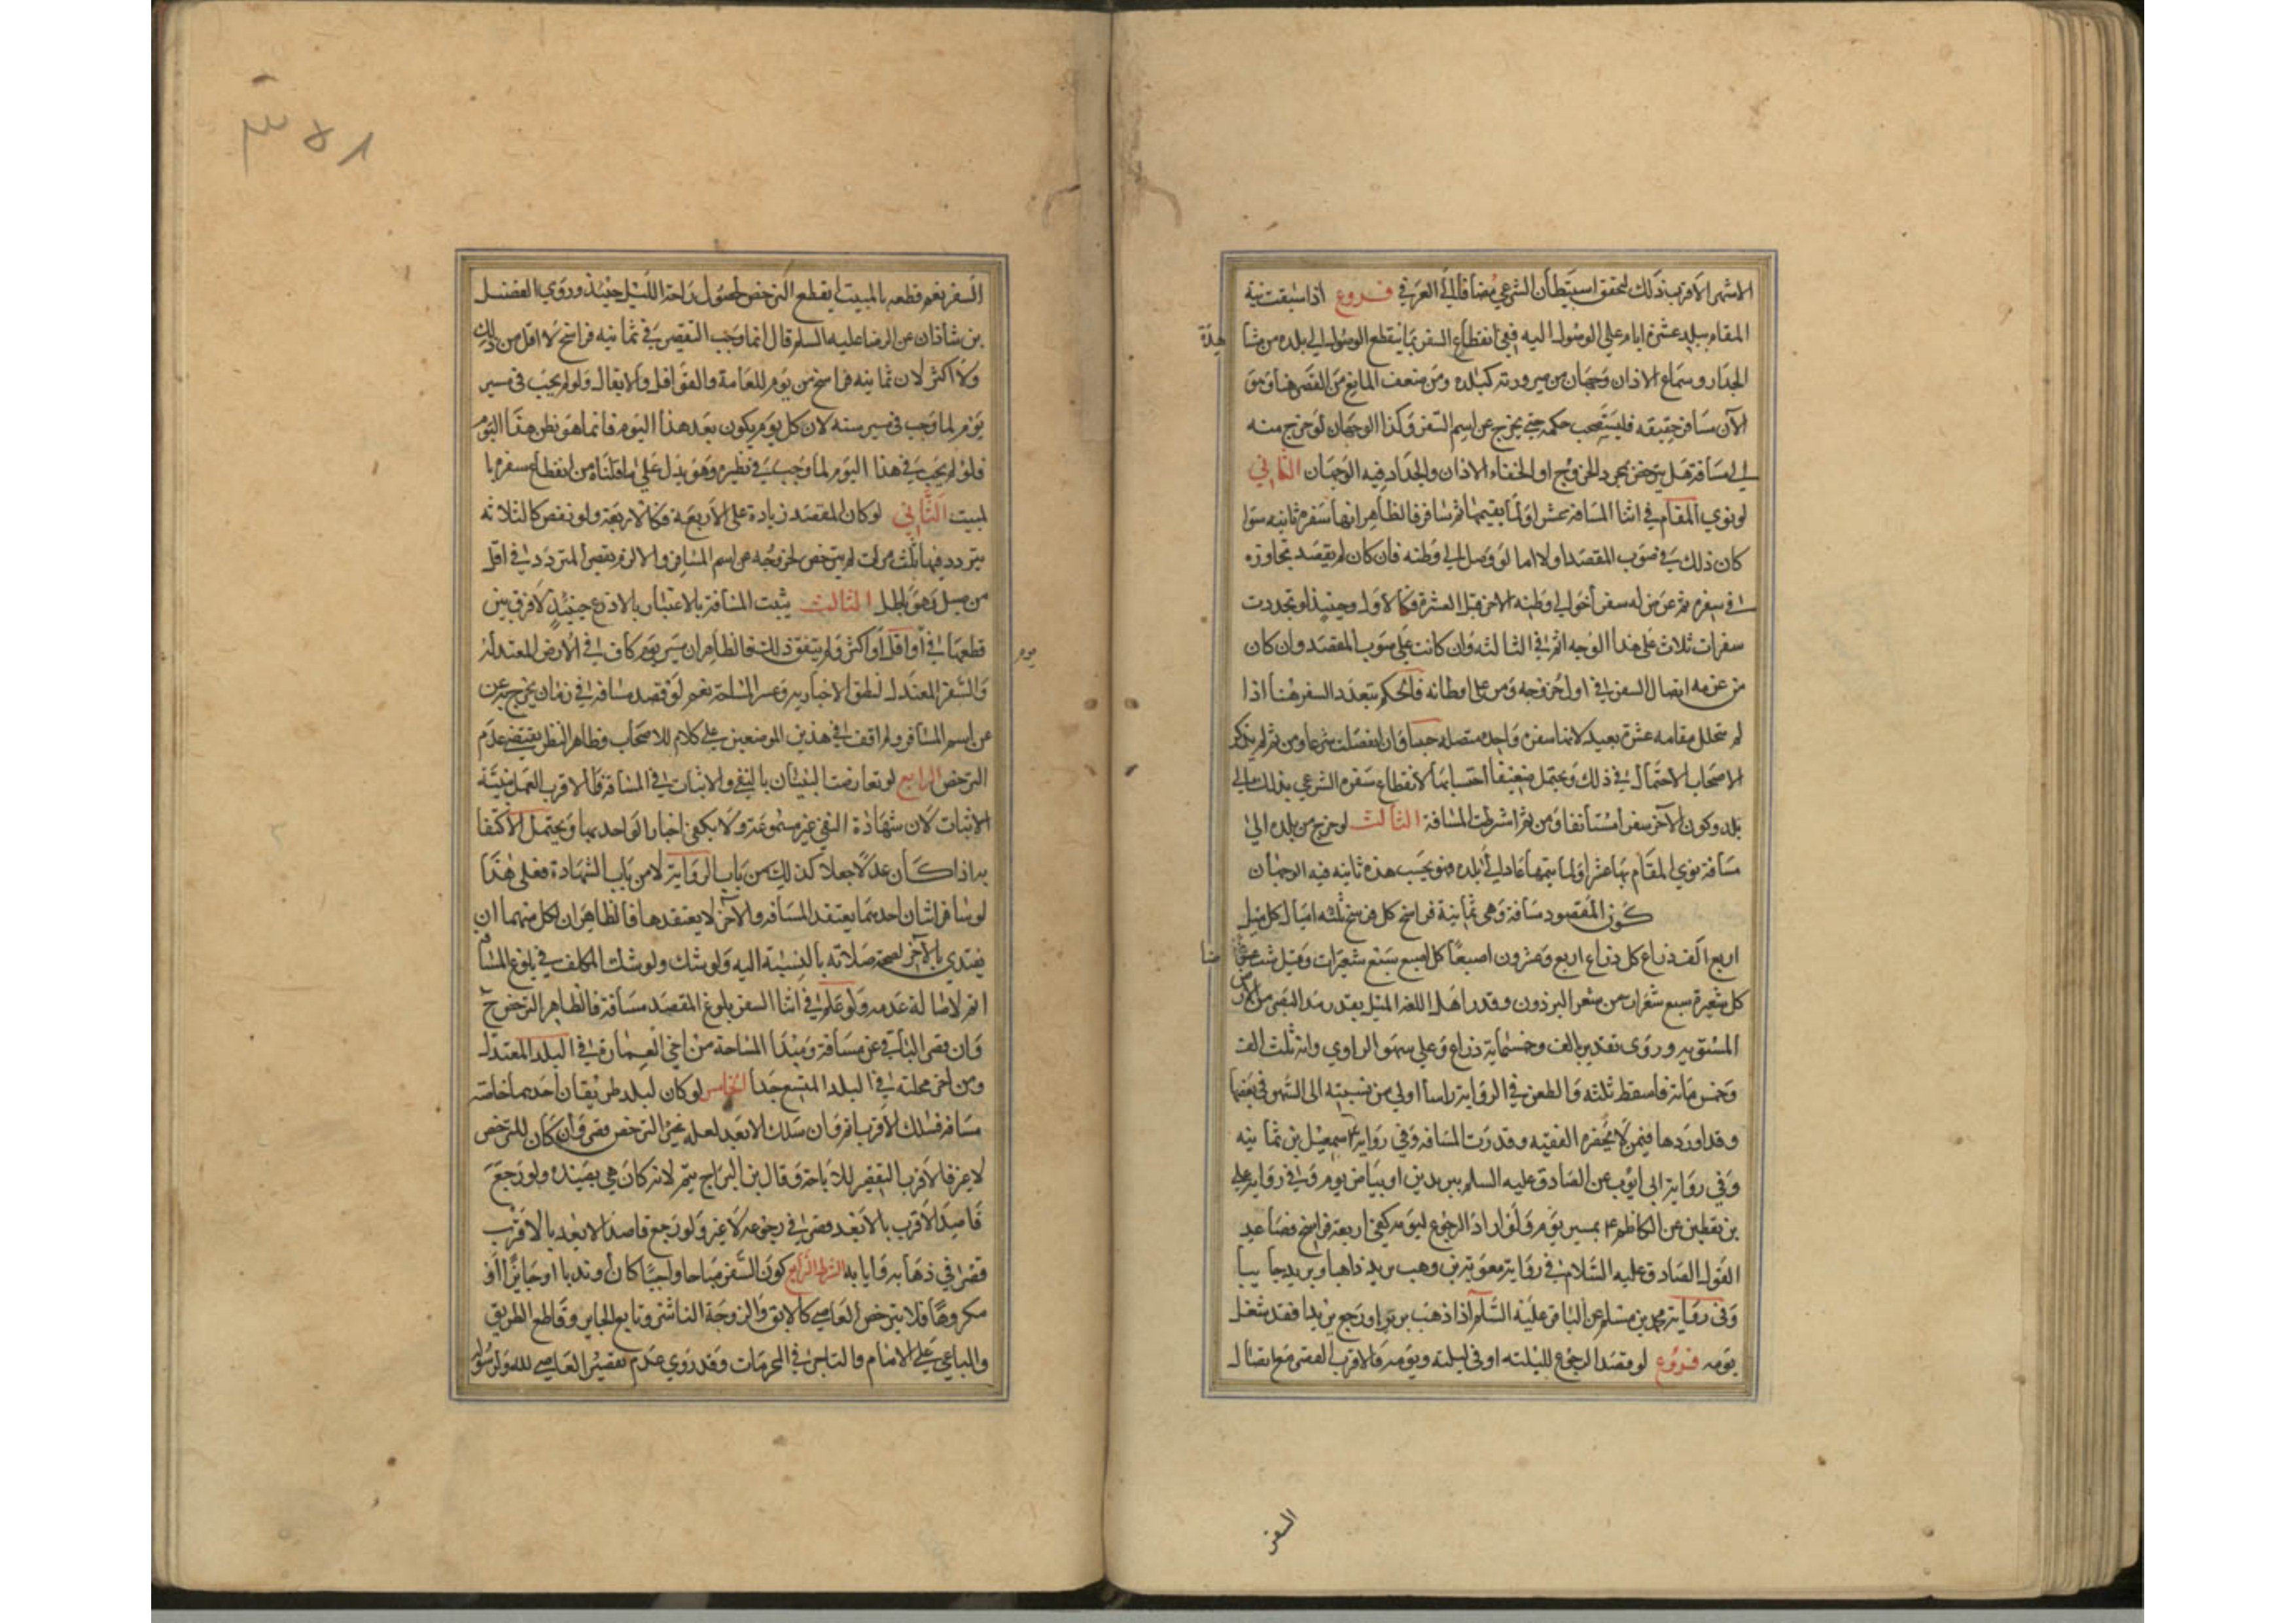 الاشهر الاقرب ذلك لتحقق استيطان الشرعي مضافا الى العرفي فروع اذا سبقت نية
المقام ببلد عشرة ايام على الوصول اليه ففي انقطاع السفر بما ينقطع الوصول الى بلده من مشا
هدة
الجدار وسماع الاذان وجهان من صيرورته كبلده ومن ضعف المانع من القصر هنا وهو
الآن مسافر حقيقة فليستصحب حكمه حتى يخرج عن اسم السفر وكذا الوجهان لو خرج منه
الى مسافة هل يترخص بمجرد الخروج او الخفاء الاذان والجدار فيه الوجهان الثاني
لو نوى المقام في اثنا المسافة عشرا ولما يقيمها ثم سافر فالظاهر انها سفرة ثانية سوا
كان ذلك في صوب المقصد اولا اما لو وصل الى وطنه فان كان لم يقصد تجاوزه
في سفره ثم عرض له سفر آخر الى وطنه الاخر قبل العشرة فكالاول وحينئذ لو تجددت
سفرات ثلاث على هذا الوجه اتم في الثالثة وان كانت على صوب المقصد وان كان
من عزمه اتصال السفر في اول خروجه ومر على اوطانه فالحكم بتعدد السفر هنا اذا
لم يتخلل مقامه عشرة بعيد لانها سفرة واحدة متصلة حسا وان انفصلت شرعا ومن ثم لم يذكر
الاصحاب الاحتمال في ذلك ويحتمل ضعيفا احتسابها لانقطاع سفره الشرعي بذلك
بلده وكون الآخر سفرا مستأنفا ومن ثم اشترطت المسافة الثالث لو خرج من بلده الى
مسافة نوى المقام بها عشرا ولما يتمها عاد الى بلده فهو يحسب هذه ثانية فيه الوجهان
كون المقصود مسافة وهي ثمانية فراسخ كل فرسخ ثلثة اميال كل ميل
اربع الف ذراع كل ذراع اربع وعشرون اصبعا كل اصبع سبع شعيرات وقيل ست عرضا
كل شعيرة سبع شعرات من شعر البرذون وقدر اهل اللغة الميل بقدر مد البصر من الارض
المستوية وروى تقديره بالف وخمسمائة ذراع وعلى سهو الراوي وانه ثلث الف
وخمس مائة فاسقط ثلثة والطعن في الرواية راسا اولى من نسبته الى السهو في بعضها
وقد اوردها فيمن لا يحضره الفقيه وقدرت المسافة في رواية اسمعيل بن ثمانية
وفي رواية ابي ايوب عن الصادق عليه السلم ببريدين او بياض يوم وفي رواية علي
بن يقطين عن الكاظم ع بمسير يوم ولو اراد الرجوع ليومه كفى اربعة فراسخ فصاعد
القول الصادق عليه السلام في رواية معوية بن وهب بريد ذاهبا وبريد جايبا
وفي رواية محمد بن مسلم عن الباقر عليه السلم اذا ذهب بريدا ورجع بريدا فقد شغل
يومه فروع لو قصد الرجوع لليلته او في ليلته ويومه فالاقرب القصر مع اتصال
السفر
٣٥٨
السفر نعم قطعه بالمبيت لم يقطع الترخص لحصول راحة الليل حينئذ وروى الفضل
بن شاذان عن الرضا عليه السلم قال انما وجب التقصير في ثمانيه فراسخ لا اقل من ذلك
ولا اكثر لان ثمانيه فراسخ من يوم للعامة والقوافل والاثقال ولو لم يجب في مسير
يوم لما وجب في مسير سنة لان كل يوم يكون بعد هذا اليوم فانما هو نظير هذا اليوم
فلو لم يجب في هذا اليوم لما وجب في نظيره وهو يدل على ما قلناه من انقطاع سفره با
لمبيت الثاني لو كان المقصد زيادة على الاربعة فكالاربعة ولو نقص كالثلاثة
يتردد فيها ثلث مرات لم يترخص لخروجه عن اسم المسافر والا لزم تقصير المتردد في اقل
من ميل وهو باطل الثالث يثبت المسافة بالاعتبار بالاذرع حينئذ لا فرق بين
قطعها في يوم او اقل او اكثر ولو لم يتفق ذلك فالظاهر ان مسير يوم كاف في الارض المعتدلة
يوم
والسير المعتدل لنطق الاخبار به وعسر المساحة نعم لو قصد مسافة في زمان يخرج به عن
عن اسم المسافر ولم اقف في هذين الموضعين على كلام للاصحاب وظاهر النظر يقتضي عدم
الترخص الرابع لو تعارضت البينتان بالنفي والاثبات في المسافة فالاقرب العمل ببينة
الاثبات لان شهادة النفي غير مسموعة ولا يكفي اخبار الواحد بها ويحتمل الاكتفا
به اذا كان عدلا جعلا كذلك من باب الرواية لا من باب الشهادة فعلى هذا
لو سافر اثنان احدهما يعتقد المسافة والآخر لا يعتقدها فالظاهر ان لكل منهما ان
يقتدي بالآخر لصحة صلاته بالنسبة اليه ولو شك ولو شك المكلف في بلوغ المسافة
اتم لاصالة عدمه ولو علم في اثنا السفر بلوغ المقصد مسافة فالظاهر الترخص ح
وان قصر الباقي عن مسافة ومبدأ المساحة من آخر العمارة في البلد المعتدل
ومن آخر محلته في البلد المتسع جدا الخامس لو كان لبلد طريقان احدهما خاصة
مسافة فسلك الاقرب اتم وان سلك الابعد لعلة غير الترخص قصر وان كان للترخص
لا غير فالاقرب التقصير للاباحة وقال بن البراج يتم لانه كاللاهي بصيده ولو رجع
قاصد الاقرب بالابعد قصر في رجوعه لا غير ولو رجع قاصد الابعد بالاقرب
قصر في ذهابه وايابه الشرط الرابع كون السفر مباحا واجبا كان او ندبا او جايزا او
مكروها فلا يترخص العاصي كالآبق والزوجة الناشز وتابع الجاير وقاطع الطريق
والباغي على الامام والتاجر في المحرمات وقد روى عدم تقصير العاصي لله ولرسوله